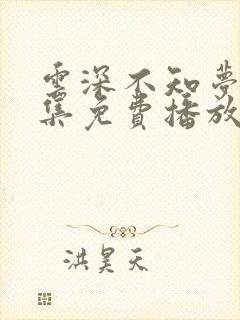 雲深不知夢
集免費播放
洪昊天